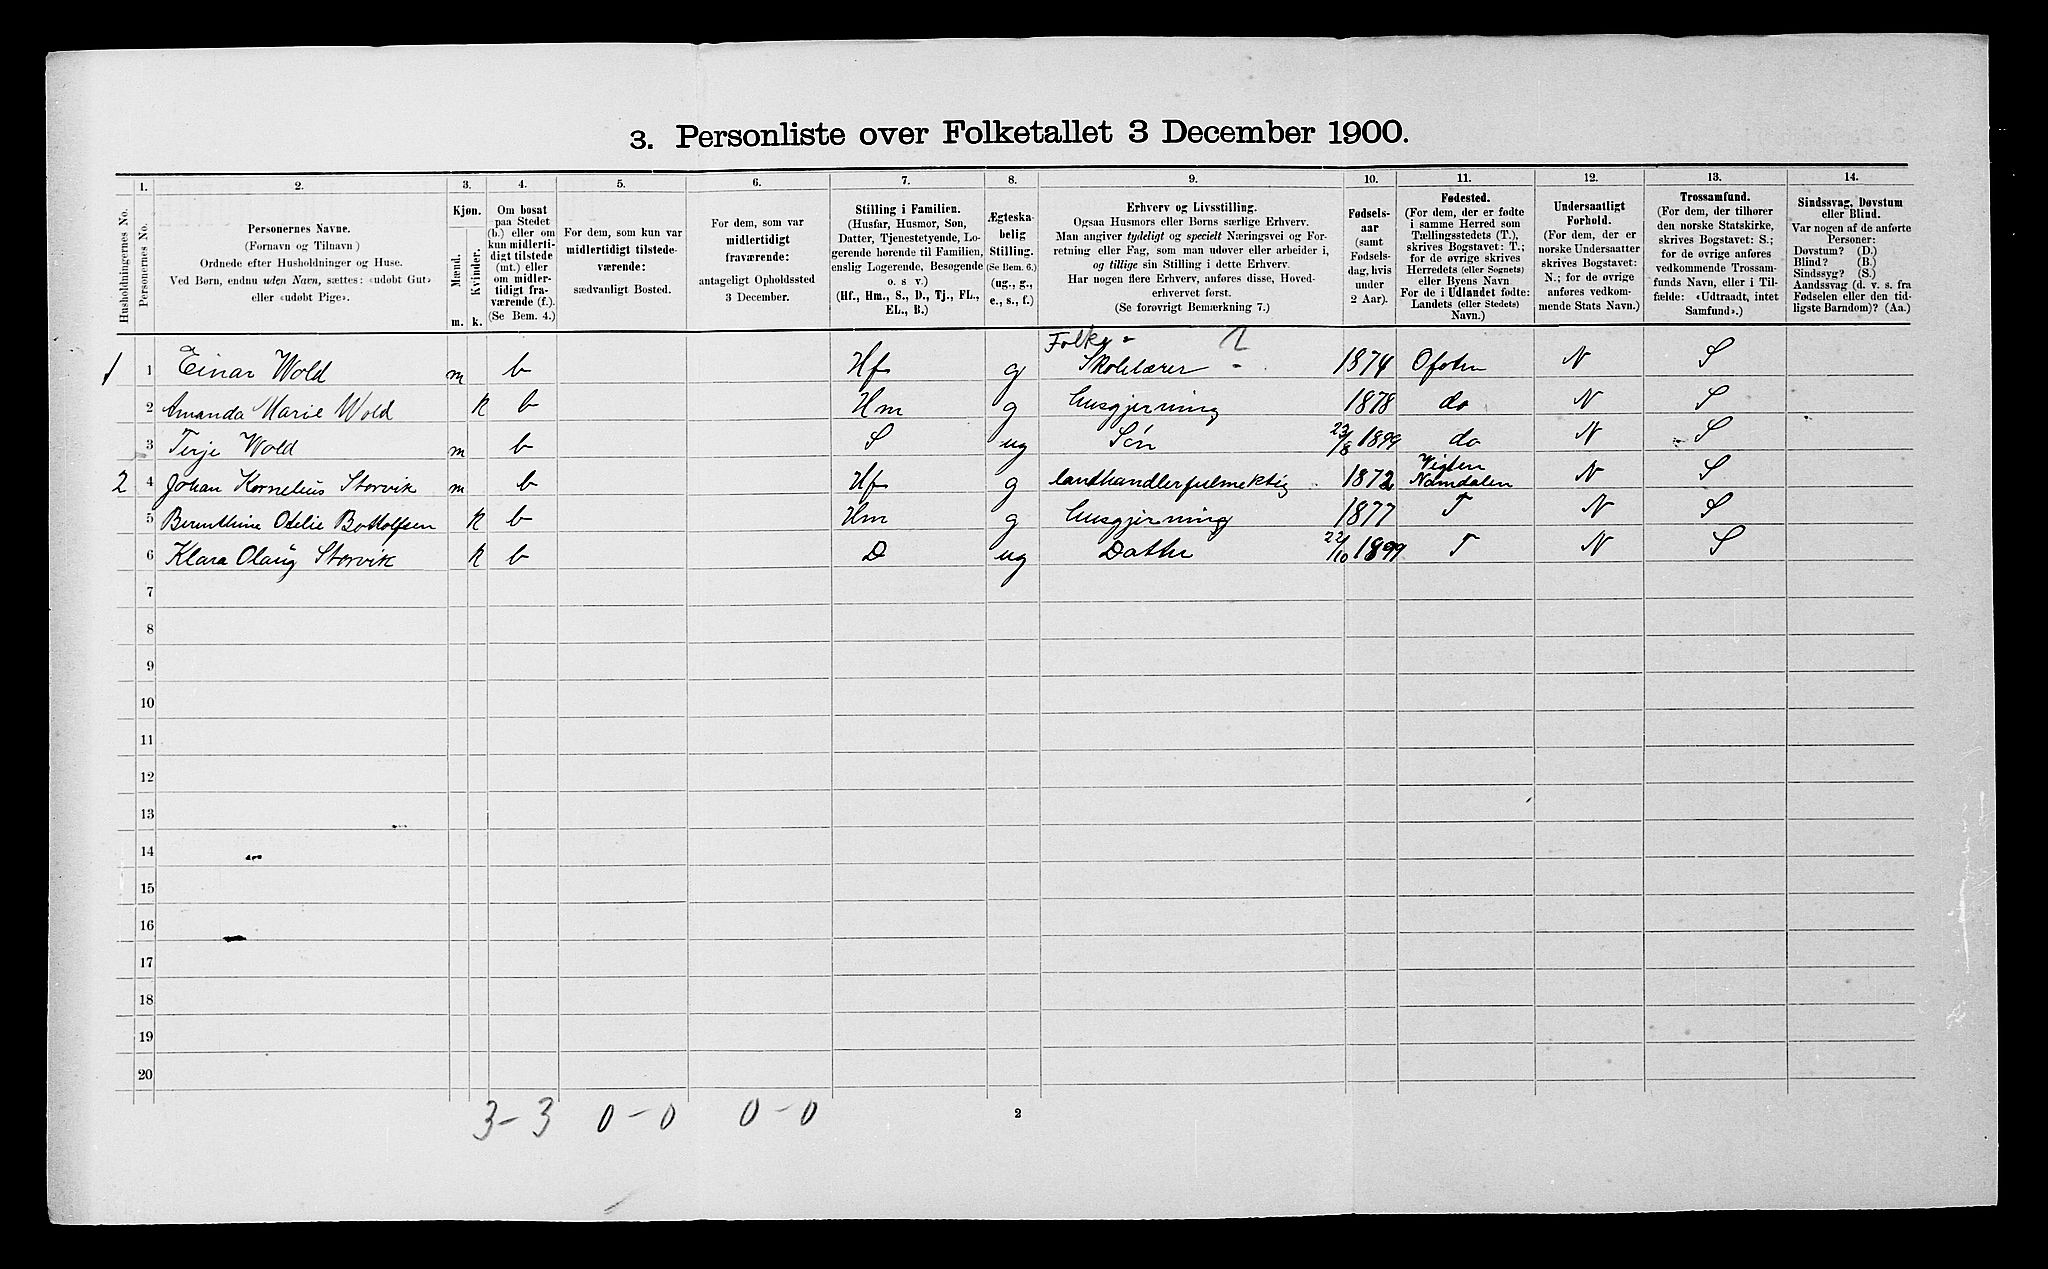 3. Personliste over Folketallet 3 December 1900.
Husholdningernes No.
1. Personernes No.
2. Personernes Navne.
(Fornavn og Tilnavn)
Ordnede efter Husholdninger og Huse.
Ved Børn, endnu uden Navn, sættes: «udøbt Gut»
eller «udøbt Pige».
3. Kjøn.
Mænd. m.
Kvinder. k.
4. Om bosat
paa Stedet
(b.) eller om
kun midlerti-
digt tilstede
(mt.) eller
om midler-
tidigt fra-
værende (f.).
(Se Bem. 4.)
5. For dem, som kun var
midlertidigt tilstede-
værende:
sædvanligt Bosted.
6. For dem, som var
midlertidigt
fraværende:
antageligt Opholdssted
3 December.
7. Stilling i Familien.
(Husfar, Husmor, Søn,
Datter, Tjenestetyende, Lo-
gerende hørende til Familien,
enslig Logerende, Besøgende
o. s v.)
(Hf., Hm., S., D., Tj., FL.,
EL., B.)
8. Ægteska-
belig
Stilling.
(Se Bem. 6.)
(ug., g.,
e., s., f.)
9. Erhverv og Livsstilling.
Ogsaa Husmors eller Børns særlige Erhverv.
Man angiver tydeligt og specielt Næringsvei og For-
retning eller Fag, som man udøver eller arbeider i,
og tillige sin Stilling i dette Erhverv.
Har nogen flere Erhverv, anføres disse, Hoved-
erhvervet først.
(Se forøvrigt Bemærkning 7.)
10. Fødsels-
aar
(samt
Fødsels-
dag, hvis
under
2 Aar).
11. Fødested.
(For dem, der er fødte
i samme Herred som
Tællingsstedets (T.),
skrives Bogstavet: T.;
for de øvrige skrives
Herredets (eller Sognets)
eller Byens Navn
For de i Udlandet fødte:
Landets (eller Stedets)
Navn.)
12. Undersaatligt
Forhold.
(For dem, der er
norske Undersaatter
skrives Bogstavet:
N.; for de øvrige
anføres vedkom-
mende Stats Navn.)
13. Trossamfund.
(For dem, der tilhører
den norske Statskirke,
skrives Bogstavet: S.;
for de øvrige anføres
vedkommende Trossam-
funds Navn, eller i Til-
fælde: «Udtraadt, intet
Samfund».)
14. Sindssvag, Døvstum
eller Blind.
Var nogen af de anførte
Personer:
Døvstum? (D.)
Blind? (B.)
Sindssyg? (S.)
Aandssvag (d. v. s. fra
Fødselen eller den tid-
ligste Barndom)? (Aa.)
Folke-
1 1 Einar Wold m b Hf g Skolelærer 1874 Ofoten N S
2 Amanda Marie Wold k b Hm g husgjerning 1878 do N S
3 Terje Wold m b S ug Søn 23/8 1899 do N S
Vigten
2 4 Johan Kornelius Storvik m b Hf g landhandlerfulmektig 1872 Namdalen N S
5 Berenthine Odelie Bottolfsen k b Hm g husgjerning 1877 T N S
6 Klara Olaug Storvik k b D ug Datter 22/10 1899 T N S
7
8
9
10
11
12
13
14
15
16
17
18
19
20
3 - 3 0 - 0 0 - 0
2